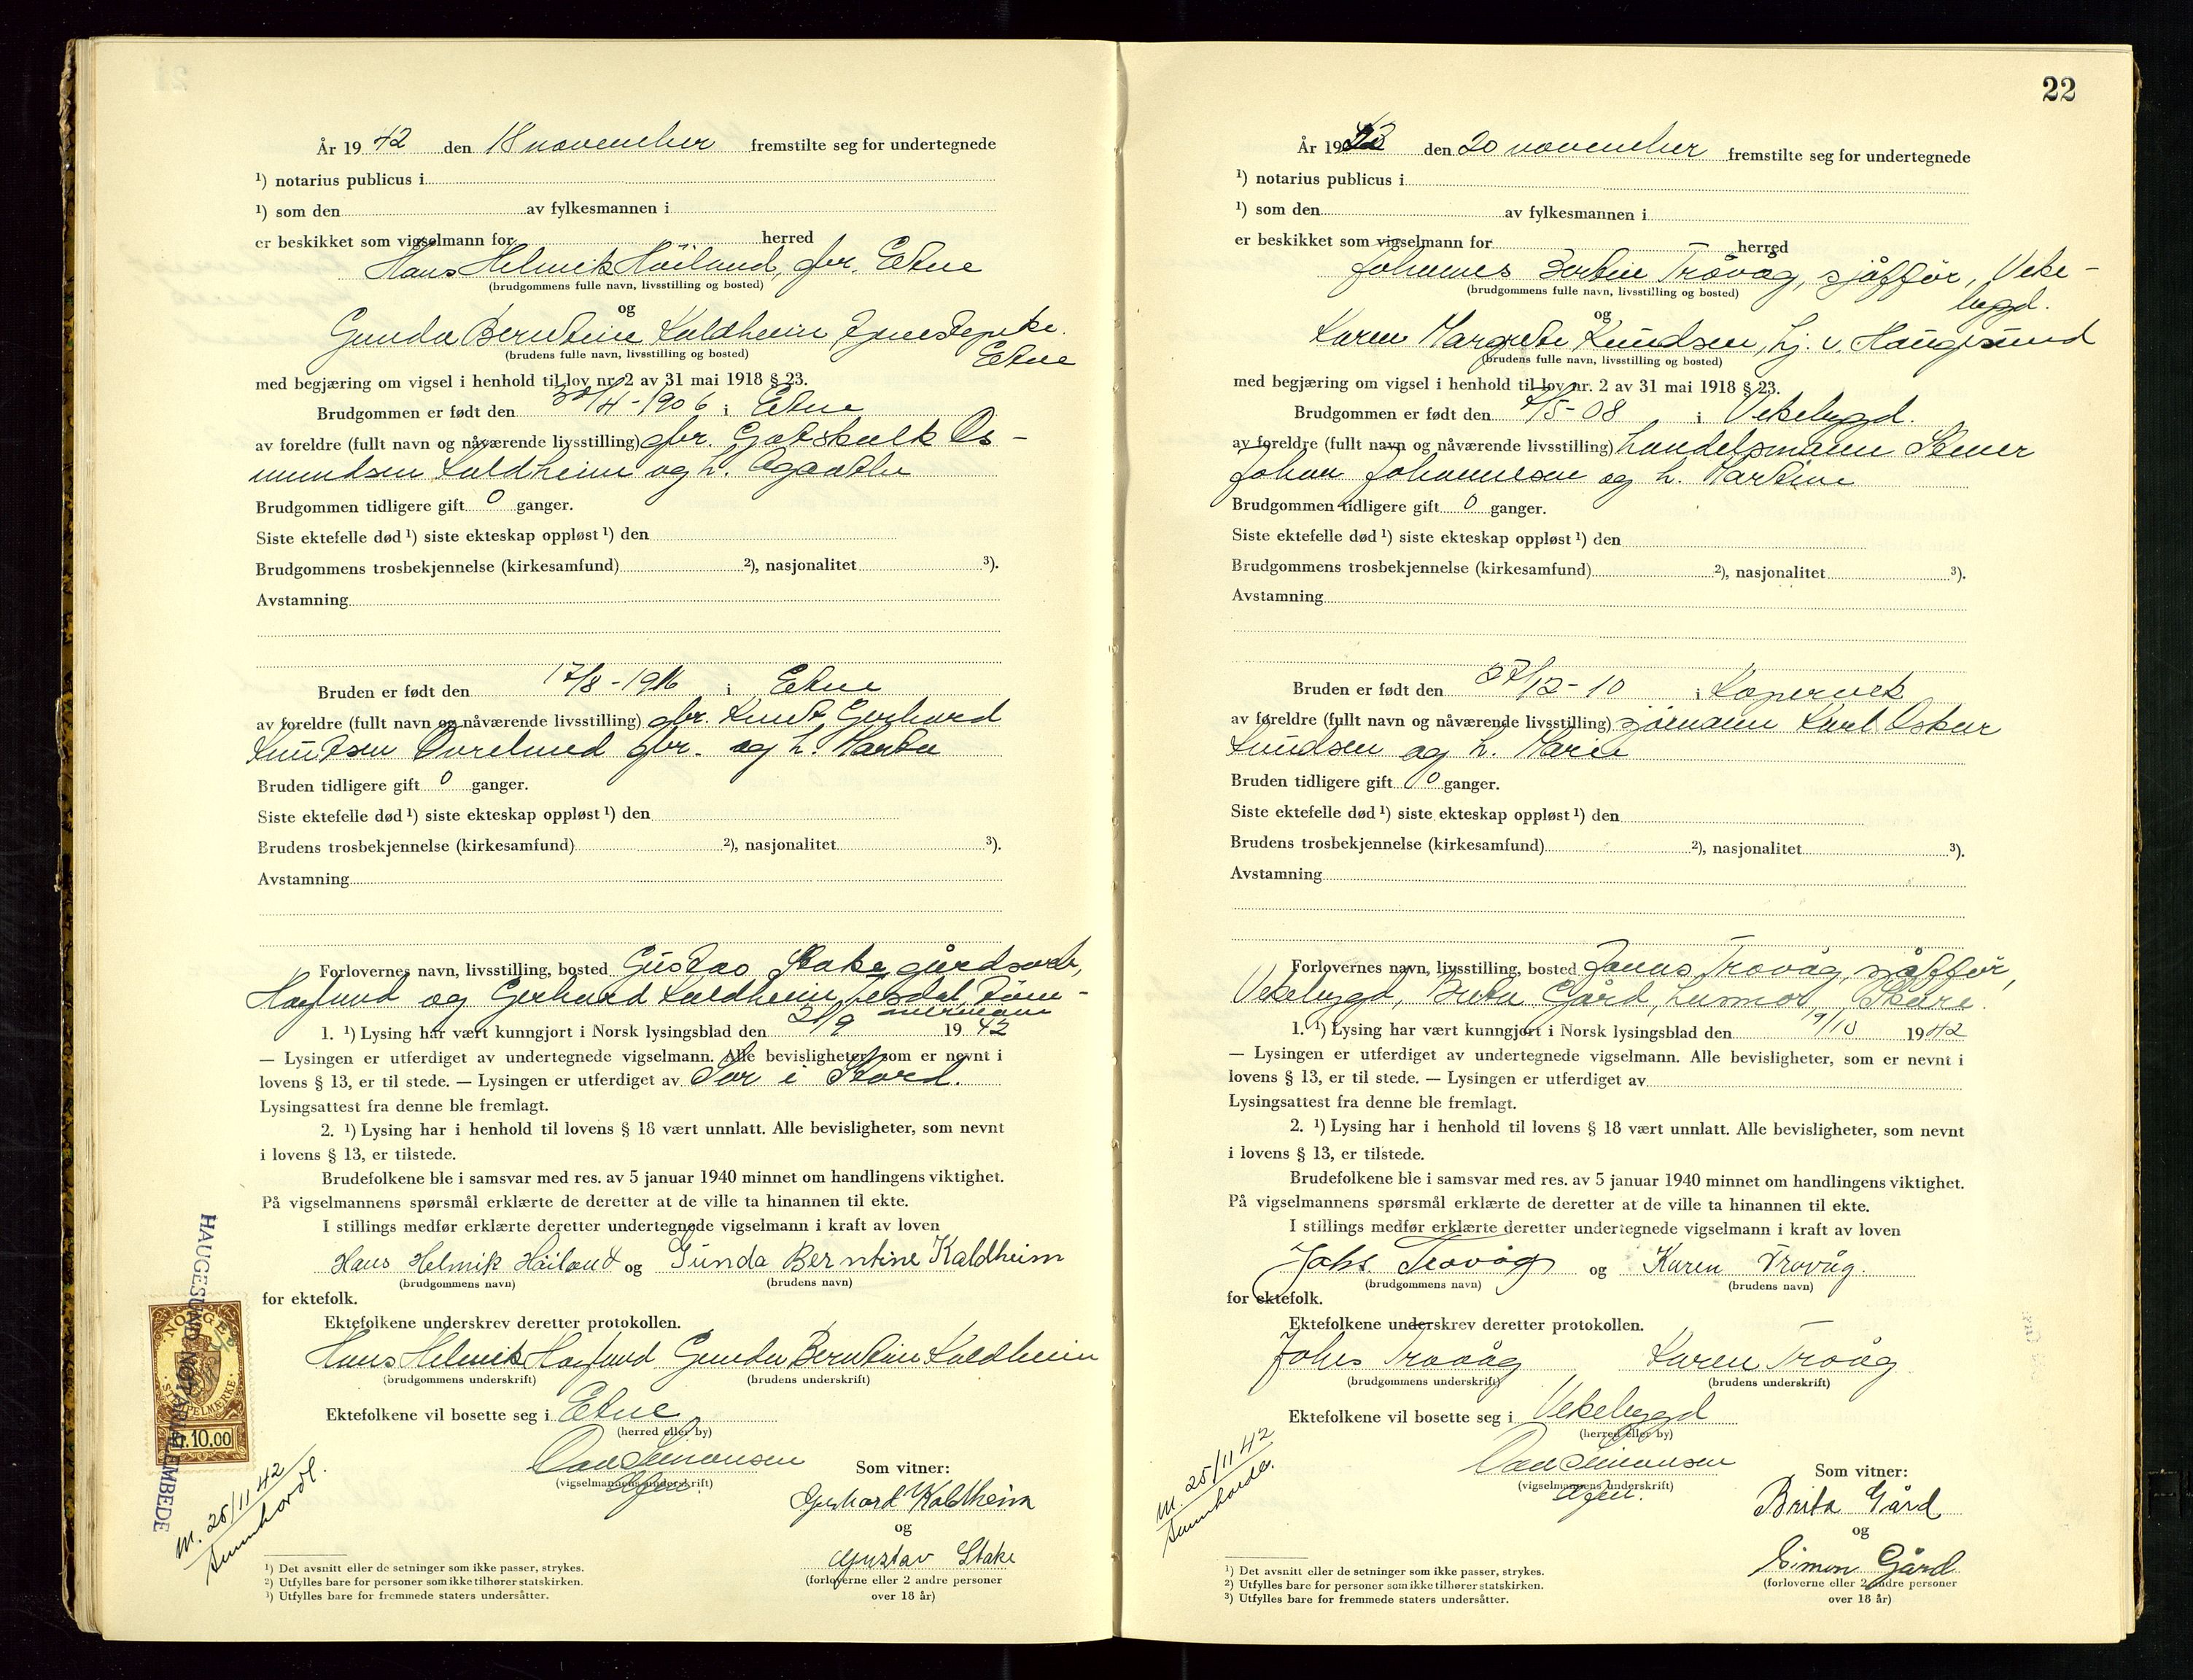 År 19 42 den 18 november fremstilte seg for undertegnede
¹) notarius publicus i
¹) som den av fylkesmannen i
er beskikket som vigselmann for herred
Hans Helmik Höiland, gbr. Etne
(brudgommens fulle navn, livsstilling og bosted)
og
Gunda Berntine Kaldheim
Etne
(brudens fulle navn, livsstilling og bosted)
med begjæring om vigsel i henhold til lov nr. 2 av 31 mai 1918 § 23.
Brudgommen er født den 30/4-1906 i Etne
av foreldre (fullt navn og nåværende livsstilling) gbr. Gotskalk Os-
mundsen Kaldheim og h. Agaathe
Brudgommen tidligere gift 0 ganger.
Siste ektefelle død ¹) siste ekteskap oppløst ¹) den
Brudgommens trosbekjennelse (kirkesamfund) ²), nasjonalitet ³).
Avstamning
Bruden er født den 17/8-1916 i Etne
av foreldre (fullt navn og nåværende livsstilling) gbr. Knut Gerhard
Knutsen gbr. og h. Marta
Bruden tidligere gift 0 ganger.
Siste ektefelle død ¹) siste ekteskap oppløst ¹) den
Brudens trosbekjennelse (kirkesamfund) ²), nasjonalitet ³).
Avstamning
Forlovernes navn, livsstilling, bosted Gustav Stake, gårdsarb.,
Høylund og Gerhard Kaldheim, töm-
mermann
1. ¹) Lysing har vært kunngjort i Norsk lysingsblad den 21/9 19 42
— Lysingen er utferdiget av undertegnede vigselmann. Alle bevisligheter, som er nevnt i
lovens § 13, er til stede. — Lysingen er utferdiget av Sor i Stord.
Lysingsattest fra denne ble fremlagt.
2. ¹) Lysing har i henhold til lovens § 18 vært unnlatt. Alle bevisligheter, som nevnt
i lovens § 13, er tilstede.
Brudefolkene ble i samsvar med res. av 5 januar 1940 minnet om handlingens viktighet.
På vigselmannens spørsmål erklærte de deretter at de ville ta hinannen til ekte.
I stillings medfør erklærte deretter undertegnede vigselmann i kraft av loven
Hans Helmik Höiland og Gunda Berntine Kaldheim
(brudgommens navn) (brudens navn)
for ektefolk.
Ektefolkene underskrev deretter protokollen.
Hans Helmik Høylund Gunda Berntine Kaldheim
(brudgommens underskrift) (brudens underskrift)
Ektefolkene vil bosette seg i Etne
(herred eller by)
Simonsen
(vigselmannens underskrift)
Som vitner:
Gerhard Kaldheim
og
Gustav Stake
(forloverne eller 2 andre personer
over 18 år)
¹) Det avsnitt eller de setninger som ikke passer, strykes.
²) Utfylles bare for personer som ikke tilhører statskirken.
³) Utfylles bare for fremmede staters undersåtter.
HAUGESUND NOTARIALEMBEDE
NORGE
STEMPELMERKE
Kr.10.00
M. 25/11 42
Sunnhordl.
22
År 1942 den 20 november fremstilte seg for undertegnede
¹) notarius publicus i
¹) som den av fylkesmannen i
er beskikket som vigselmann for herred
Johannes Bertin Trovåg, sjåffør, Veke-
bygd.
(brudgommens fulle navn, livsstilling og bosted)
og
Karen Margrete Knudsen, hj. v. Haugesund
(brudens fulle navn, livsstilling og bosted)
med begjæring om vigsel i henhold til lov nr. 2 av 31 mai 1918 § 23.
Brudgommen er født den 4/5-08 i Vekebygd.
av foreldre (fullt navn og nåværende livsstilling) handelsmann Stener
Johan Johannesen og h. Martine
Brudgommen tidligere gift 0 ganger.
Siste ektefelle død ¹) siste ekteskap oppløst ¹) den
Brudgommens trosbekjennelse (kirkesamfund) ²), nasjonalitet ³).
Avstamning
Bruden er født den 27/12-10 i Kopervik
av foreldre (fullt navn og nåværende livsstilling) sjömann Karl Oskar
Knudsen og h. Marie
Bruden tidligere gift 0 ganger.
Siste ektefelle død ¹) siste ekteskap oppløst ¹) den
Brudens trosbekjennelse (kirkesamfund) ²), nasjonalitet ³).
Avstamning
Forlovernes navn, livsstilling, bosted Jonas Trovåg, sjåffør,
Vekebygd, Brita Gård, husmor, Skåre.
1. ¹) Lysing har vært kunngjort i Norsk lysingsblad den 19/10 1942
— Lysingen er utferdiget av undertegnede vigselmann. Alle bevisligheter, som er nevnt i
lovens § 13, er til stede. — Lysingen er utferdiget av
Lysingsattest fra denne ble fremlagt.
2. ¹) Lysing har i henhold til lovens § 18 vært unnlatt. Alle bevisligheter, som nevnt
i lovens § 13, er tilstede.
Brudefolkene ble i samsvar med res. av 5 januar 1940 minnet om handlingens viktighet.
På vigselmannens spørsmål erklærte de deretter at de ville ta hinannen til ekte.
I stillings medfør erklærte deretter undertegnede vigselmann i kraft av loven
Johs. Trovåg og Karen Trovåg.
(brudgommens navn) (brudens navn)
for ektefolk.
Ektefolkene underskrev deretter protokollen.
Johs Trovåg Karen Trovåg
(brudgommens underskrift) (brudens underskrift)
Ektefolkene vil bosette seg i Vekebygd
(herred eller by)
Simonsen
(vigselmannens underskrift)
Som vitner:
Brita Gård
og
Simon Gård
(forloverne eller 2 andre personer
over 18 år)
M. 25/11 42
Sunnhordl.
¹) Det avsnitt eller de setninger som ikke passer, strykes.
²) Utfylles bare for personer som ikke tilhører statskirken.
³) Utfylles bare for fremmede staters undersåtter.